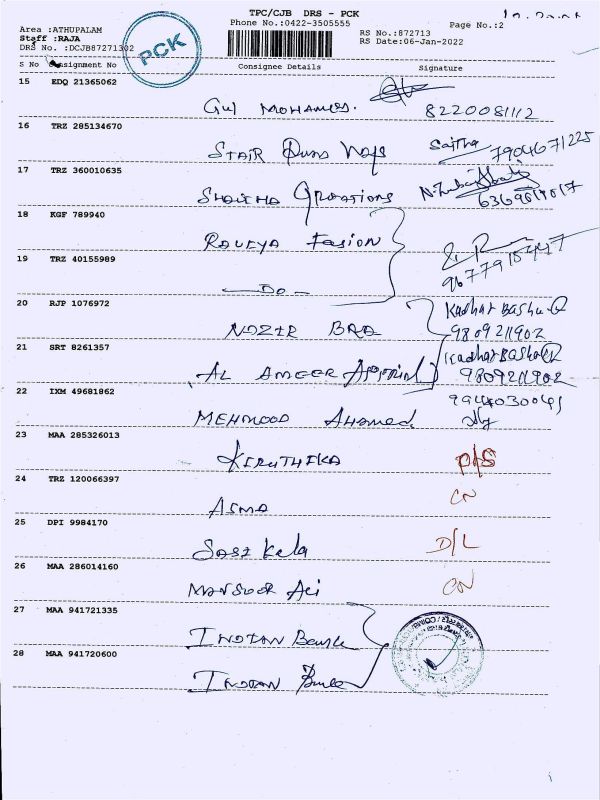 TPC/CJB DRS - PCK
Phone No.:0422-3505555 Page No.:2
Area :ATHUPALAM RS No.:872713
Staff :RAJA RS Date:06-Jan-2022
DRS No. :DCJB87271302
PCK
S No Consignment No Consignee Details Signature
15 EDQ 21365062
Gul MOHAMED. 8220081112
16 TRZ 285134670
STAIR Saitha 7904671225
17 TRZ 360010635
6369819017
18 KGF 789940
RAUFYA FASION
19 TRZ 40155989
—DO—
20 RJP 1076972 Kadhar Basha
NOZIR BRA 9809211902
21 SRT 8261357 Kadhar BASHA
AL AMEER 9809211902
22 IXM 49681862
MEHMOOD AHAMED.
23 MAA 285326013
KIRUTHIKA D/S
24 TRZ 120066397
ASMA CN
25 DPI 9984170
SASI Kala D/L
26 MAA 286014160
MANSOOR Ali CN
27 MAA 941721335
INDIAN Bank
28 MAA 941720600
INDIAN Bank